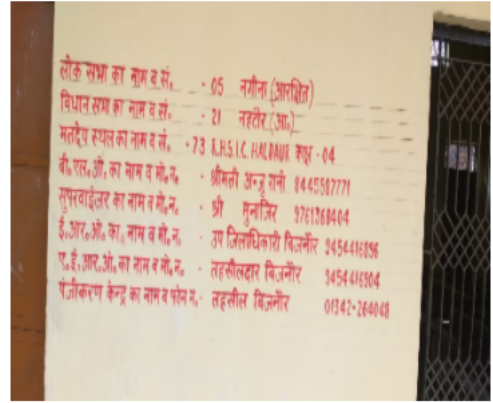 लोक सभा का नाम व सं. - 05 नगीना (आरक्षित)
विधान सभा का नाम व सं. - 21 नहटौर (आ.)
मतदेय स्थल का नाम व सं. - 73 R.H.S.I.C. HALDAUR कक्ष - 04
बी. एल. ओ. का नाम व मो. न. - श्रीमती अन्जू रानी 8445587771
सुपरवाईजर का नाम व मो. न. - श्री मुनाजिर 9761368404
ई. आर. ओ. का नाम व मो. न. - उप जिलाधिकारी बिजनौर 9454416896
ए. ई. आर. ओ. का नाम व मो. न. - तहसीलदार बिजनौर 9454416904
पंजीकरण केन्द्र का नाम व फोन न. - तहसील बिजनौर 01342-264048